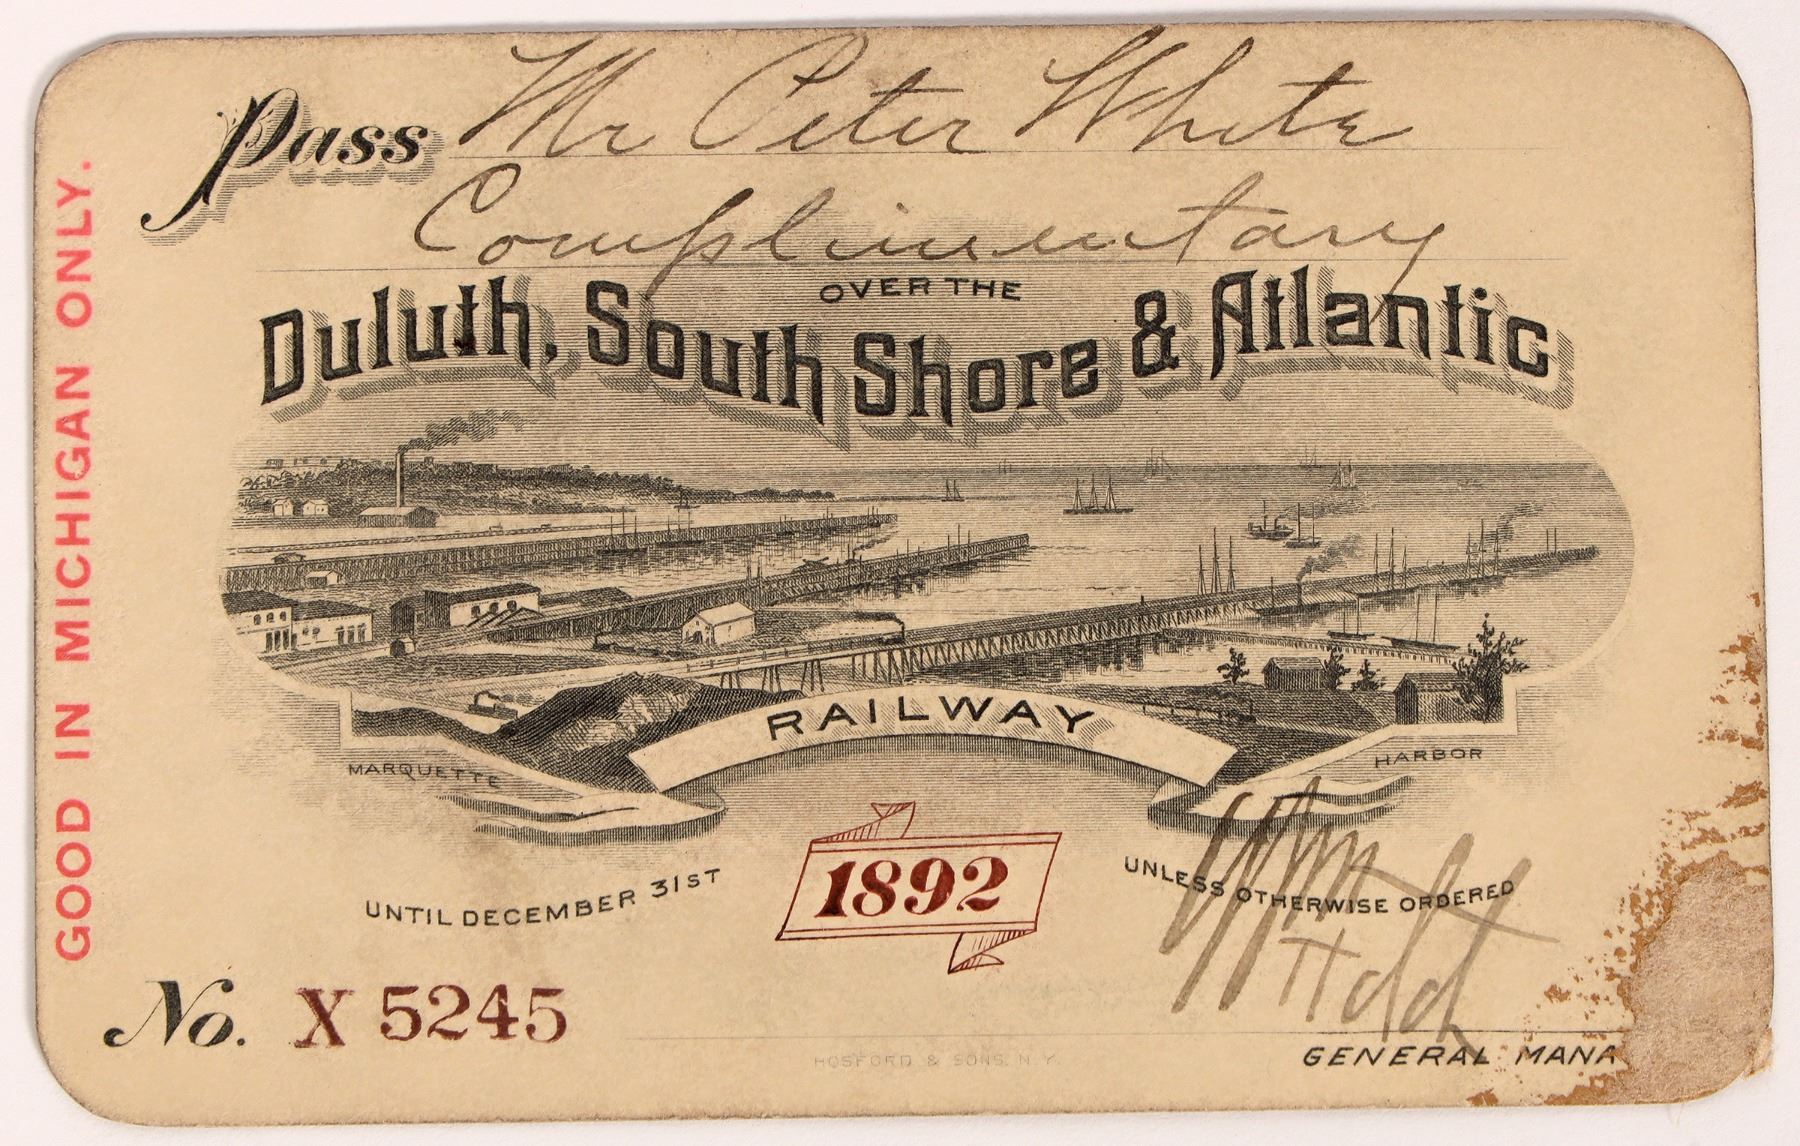 Pass Mr Peter White
Complimentary
OVER THE
Duluth, South Shore & Atlantic
RAILWAY
MARQUETTE
HARBOR
UNTIL DECEMBER 31ST
1892
UNLESS OTHERWISE ORDERED
No. X 5245
HOSFORD & SONS. N. Y.
GENERAL MANA
GOOD IN MICHIGAN ONLY.